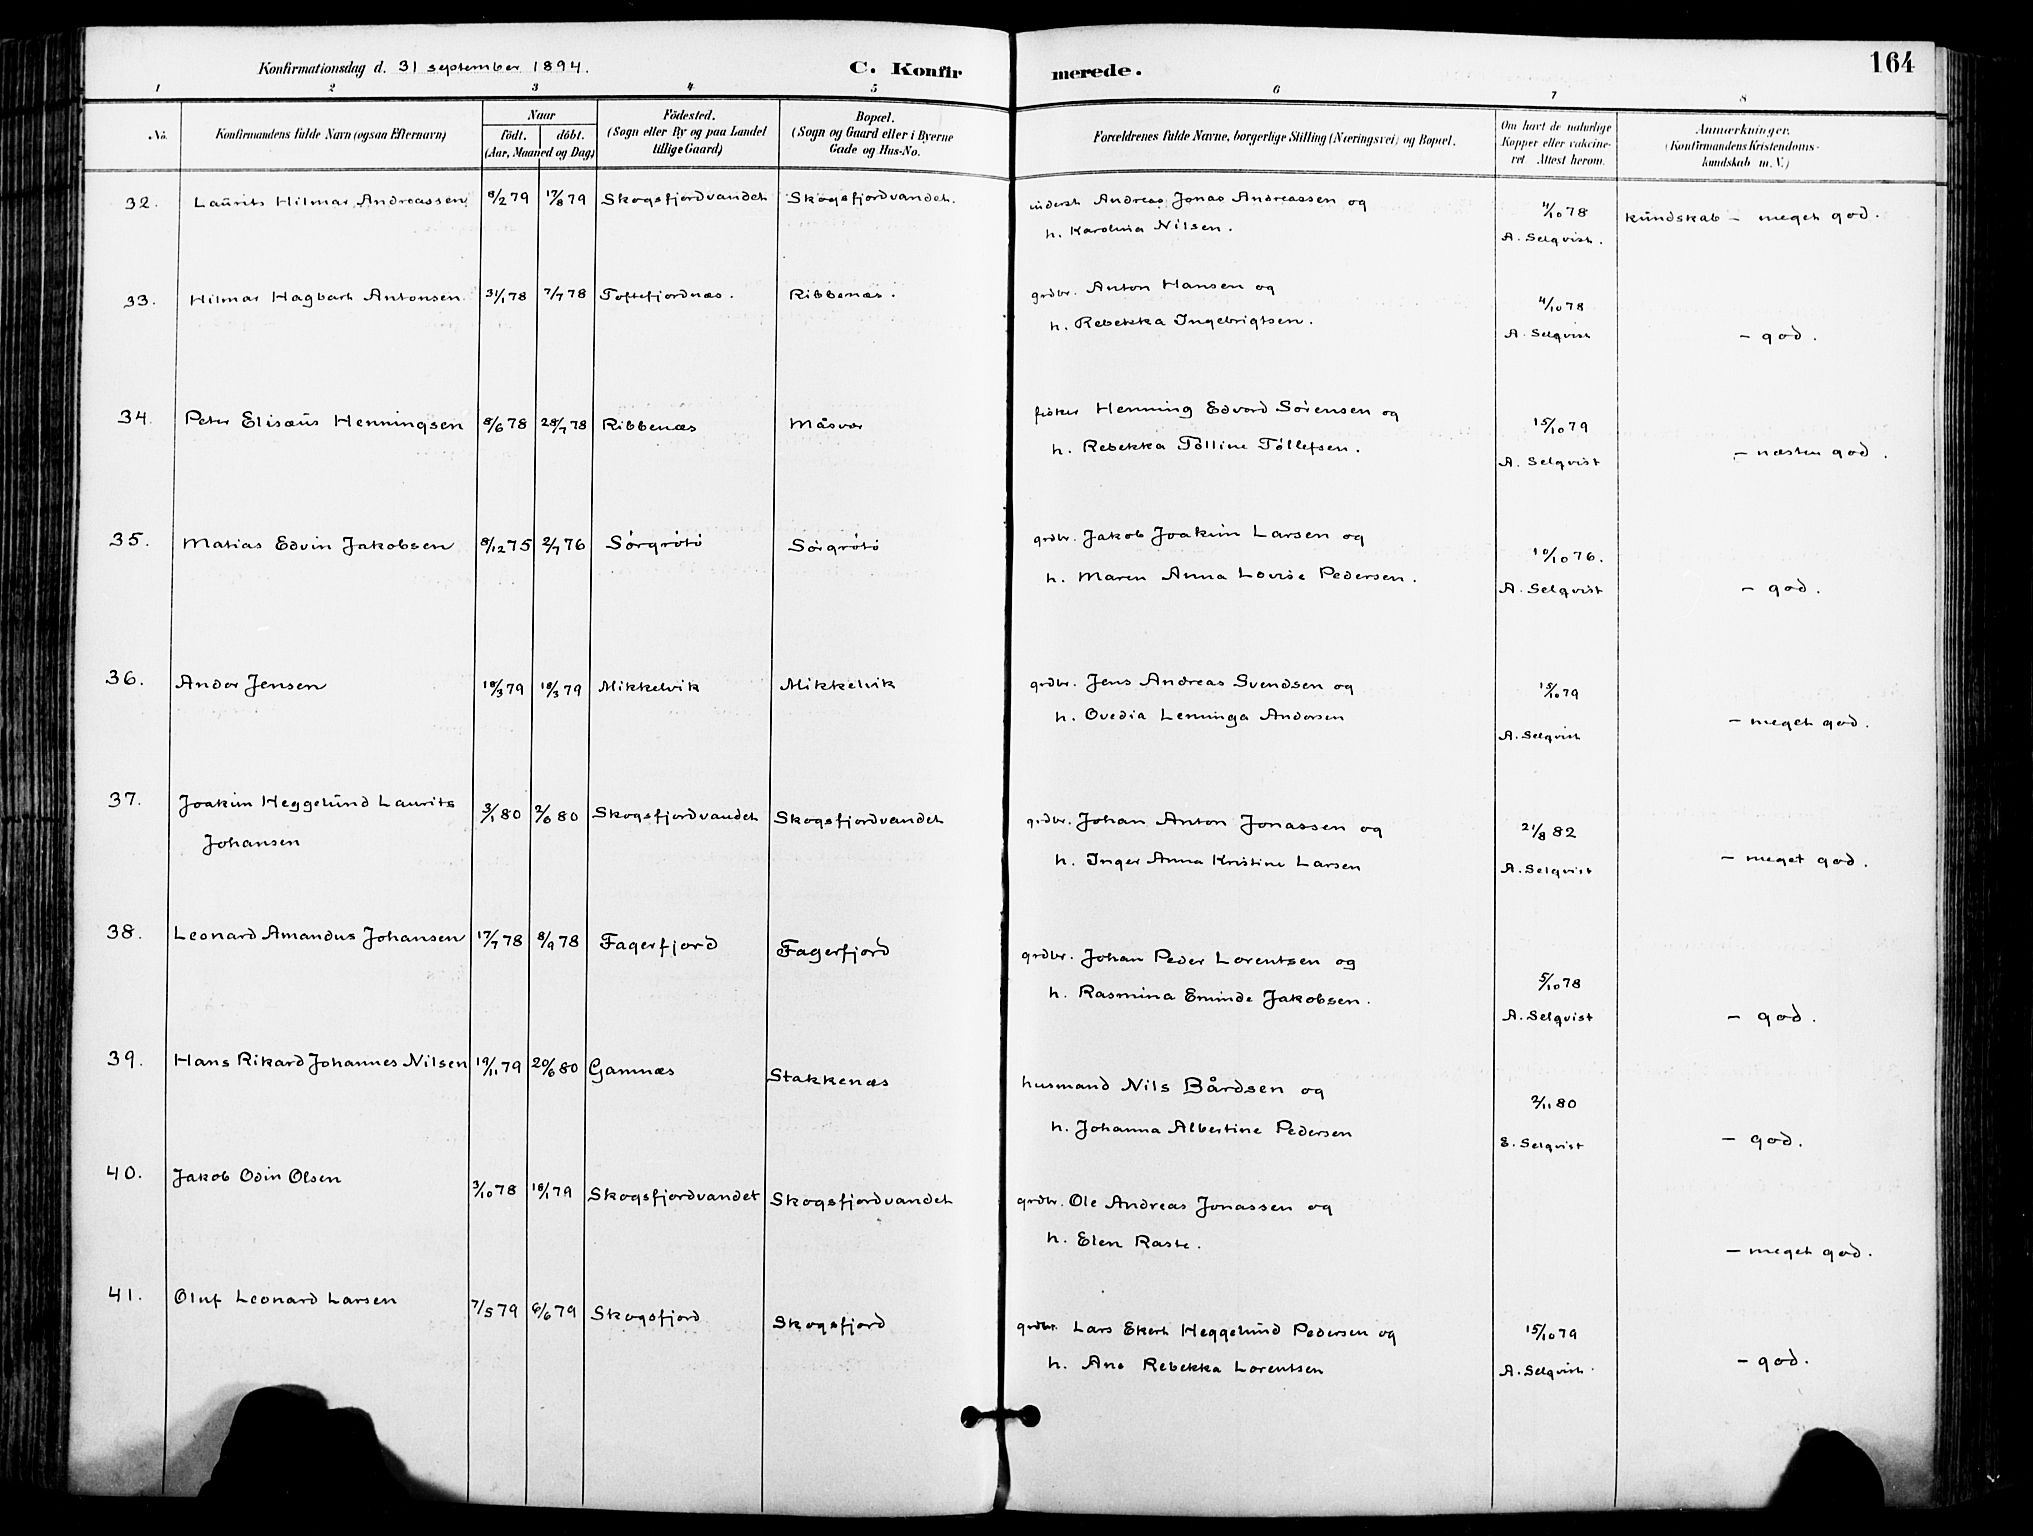 Konfirmationsdag d. 31 september 1894. C. Konfirmerede. 164
1 2 3 4 5 6 7 8
No. Konfirmandens fulde Navn (ogsaa Efternavn) Naar født. døbt. (Aar, Maaned og Dag) Födested. (Sogn eller By og paa Landet tillige Gaard) Bopæl. (Sogn og Gaard eller i Byerne Gade og Hus-No. Forældrenes fulde Navne, borgerlige Stilling (Næringsvei) og Bopæl. Om havt de naturlige Kopper eller vakcineret Attest herom. Anmærkninger. (Konfirmandens Kristendomskundskab m. V.)
32. Laurits Hilmar Andreassen 8/2 79 17/8 79 Skogsfjordvandet Skogsfjordvandet. inderst Andreas Jonas Andreassen og 4/10 78 kundskab - meget god.
h. Karolina Nilsen. A. Selqvist.
33. Hilmar Hagbart Antonsen 31/1 78 7/7 78 Toftefjordnæs. Ribbenæs. grdbr. Anton Hansen og 4/10 78
h. Rebekka Ingebrigtsen. A. Selqvist - god.
34. Peter Elisæus Henningsen 8/6 78 28/7 78 Ribbenæs Måsvær fisker Henning Edvard Sørensen og 15/10 79
h. Rebekka Tolline Tøllefsen. A. Selqvist - næsten god.
35. Matias Edvin Jakobsen 8/12 75 2/7 76 Sørgrøtø Sørgrøtø grdbr. Jakob Joakim Larsen og 10/10 76.
h. Maren Anna Lovise Pedersen. A. Selqvist - god.
36. Andor Jensen 18/3 79 18/3 79 Mikkelvik Mikkelvik grdbr. Jens Andreas Svendsen og 15/10 79
h. Ovedia Lenninga Andersen A. Selqvist - meget god.
37. Joakim Heggelund Laurits 3/1 80 2/6 80 Skogsfjordvandet Skogsfjordvandet grdbr. Johan Anton Jonassen og 21/8 82
Johansen h. Inger Anna Kristine Larsen A. Selqvist - meget god.
38. Leonard Amandus Johansen 17/7 78 8/9 78 Fagerfjord Fagerfjord grdbr. Johan Peder Lorentsen og 5/10 78
h. Rasmina Eminde Jakobsen. A. Selqvist - god.
39. Hans Rikard Johannes Nilsen 19/11 79 20/6 80 Gamnæs Stakkenæs husmand Nils Bårdsen og 2/11 80
h. Johanna Albertine Pedersen E. Selqvist - god.
40. Jakob Odin Olsen 3/10 78 18/1 79 Skogsfjordvandet Skogsfjordvandet grdbr. Ole Andreas Jonassen og
h. Elen Raste. - meget god.
41. Oluf Leonard Larsen 7/5 79 6/6 79 Skogsfjord Skogsfjord grdbr. Lars Ekert Heggelund Pedersen og 15/10 79
h. Ane Rebekka Lorentsen A. Selqvist - god.